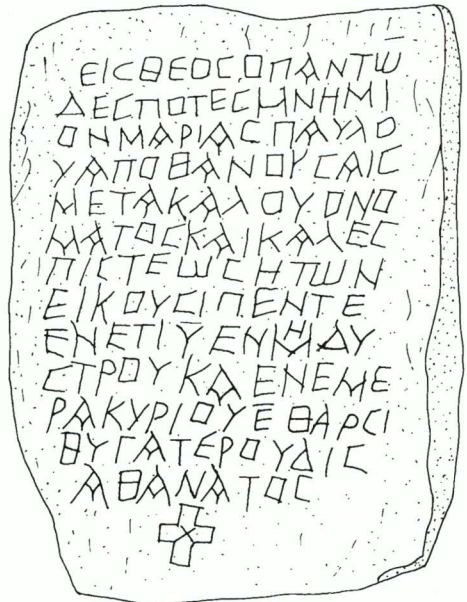 ΕΙϹΘΕΟϹΟΠΑΝΤΩ
ΔΕϹΠΟΤΕϹΜΝΗΜΙ
ΟΝΜΑΡΙΑϹΠΑΥΛΟ
ΥΑΠΟΘΑΝΟΥϹΑΙϹ
ΜΕΤΑΚΑΛΟΥΟΝΟ
ΜΑΤΟϹΚΑΙΚΑΛΕϹ
ΠΙϹΤΕΩϹΗΤΩΝ
ΕΙΚΟΥϹΙΠΕΝΤΕ
ΕΝΕΤΙΥ̅ΕΝΜΗΔΥ
ϹΤΡΟΥΚΑΕΝΕΜΕ
ΡΑΚΥΡΙΟΥΕ̅ΘΑΡϹΙ
ΘΥΓΑΤΕΡΟΥΔΙϹ
ΑΘΑΝΑΤΟϹ